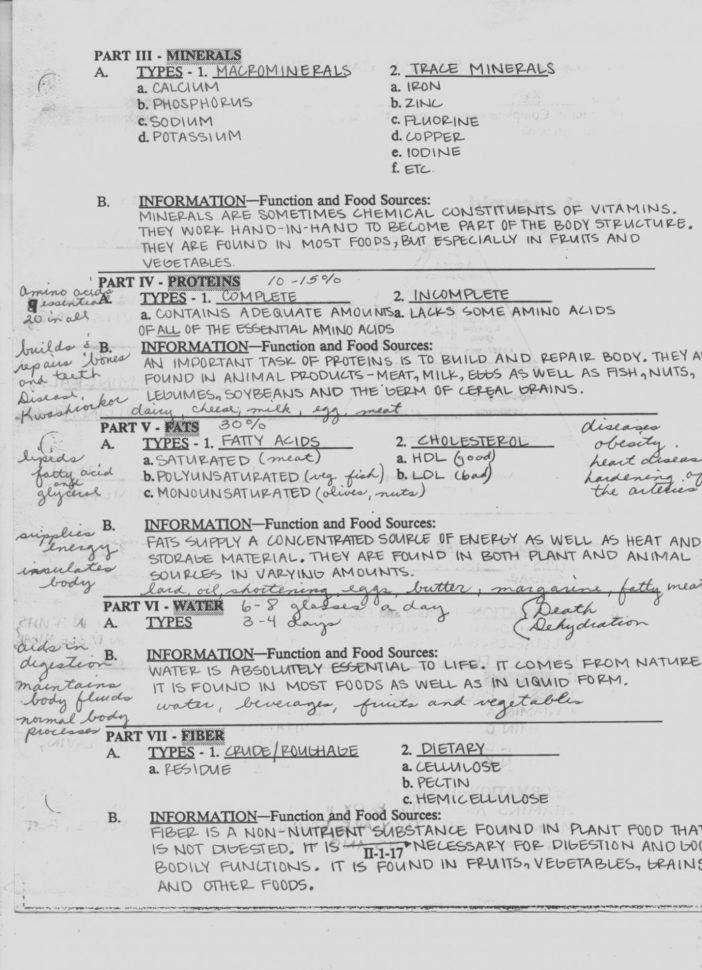 PART III - MINERALS
A. TYPES - 1. MACROMINERALS 2. TRACE MINERALS
a. CALCIUM a. IRON
b. PHOSPHORUS b. ZINC
c. SODIUM c. FLUORINE
d. POTASSIUM d. COPPER
e. IODINE
f. ETC.
B. INFORMATION—Function and Food Sources:
MINERALS ARE SOMETIMES CHEMICAL CONSTITUENTS OF VITAMINS.
THEY WORK HAND-IN-HAND TO BECOME PART OF THE BODY STRUCTURE.
THEY ARE FOUND IN MOST FOODS, BUT ESPECIALLY IN FRUITS AND
VEGETABLES.
PART IV - PROTEINS 10-15%
amino acids
9 essential
20 in all
A. TYPES - 1. COMPLETE 2. INCOMPLETE
a. CONTAINS ADEQUATE AMOUNTS a. LACKS SOME AMINO ACIDS
OF ALL OF THE ESSENTIAL AMINO ACIDS
builds &
repairs bones
and teeth
Disease,
Kwashiorkor
B. INFORMATION—Function and Food Sources:
AN IMPORTANT TASK OF PROTEINS IS TO BUILD AND REPAIR BODY. THEY A
FOUND IN ANIMAL PRODUCTS-MEAT, MILK, EGGS AS WELL AS FISH, NUTS,
LEGUMES, SOYBEANS AND THE GERM OF CEREAL GRAINS.
dairy, cheese, milk, egg, meat
PART V - FATS 30%
A. TYPES - 1. FATTY ACIDS 2. CHOLESTEROL
a. SATURATED (meat) a. HDL (good)
b. POLYUNSATURATED (veg, fish) b. LDL (bad)
c. MONOUNSATURATED (olives, nuts)
diseases
obesity.
heart diseas
hardening of
the arteries
lipids
fatty acid
and
glycerol
supplies
energy
insulates
body
B. INFORMATION—Function and Food Sources:
FATS SUPPLY A CONCENTRATED SOURCE OF ENERGY AS WELL AS HEAT AND
STORAGE MATERIAL. THEY ARE FOUND IN BOTH PLANT AND ANIMAL
SOURCES IN VARYING AMOUNTS.
lard, oil, shortening, eggs, butter, margarine, fatty mea
PART VI - WATER 6-8 glasses a day
A. TYPES 3-4 days
Death
Dehydration
aids in
digestion
maintains
body fluids
normal body
processes
B. INFORMATION—Function and Food Sources:
WATER IS ABSOLUTELY ESSENTIAL TO LIFE. IT COMES FROM NATURE
IT IS FOUND IN MOST FOODS AS WELL AS IN LIQUID FORM.
water, beverages, fruits and vegetables
PART VII - FIBER
A. TYPES - 1. CRUDE/ROUGHAGE 2. DIETARY
a. RESIDUE a. CELLULOSE
b. PECTIN
c. HEMICELLULOSE
B. INFORMATION—Function and Food Sources:
FIBER IS A NON-NUTRIENT SUBSTANCE FOUND IN PLANT FOOD THA
IS NOT DIGESTED. IT IS NECESSARY FOR DIGESTION AND GOO
II-1-17
BODILY FUNCTIONS. IT IS FOUND IN FRUITS, VEGETABLES, GRAINS
AND OTHER FOODS.